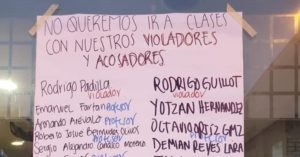 NO QUEREMOS IR A CLASES
CON NUESTROS VIOLADORES
Y ACOSADORES
Rodrigo Padilla
violador
Emanuel Profesor
Armando Arévalo Profesor
Roberto Josue Bermudez Olivos
Profesor
Sergio Alejandro Moreno
Profesor
RODRIGO GUILLOT
violador
YOTZAN HERNANDEZ
OCTAVIO ORTIZ GMZ
DEMIAN REYES LARA